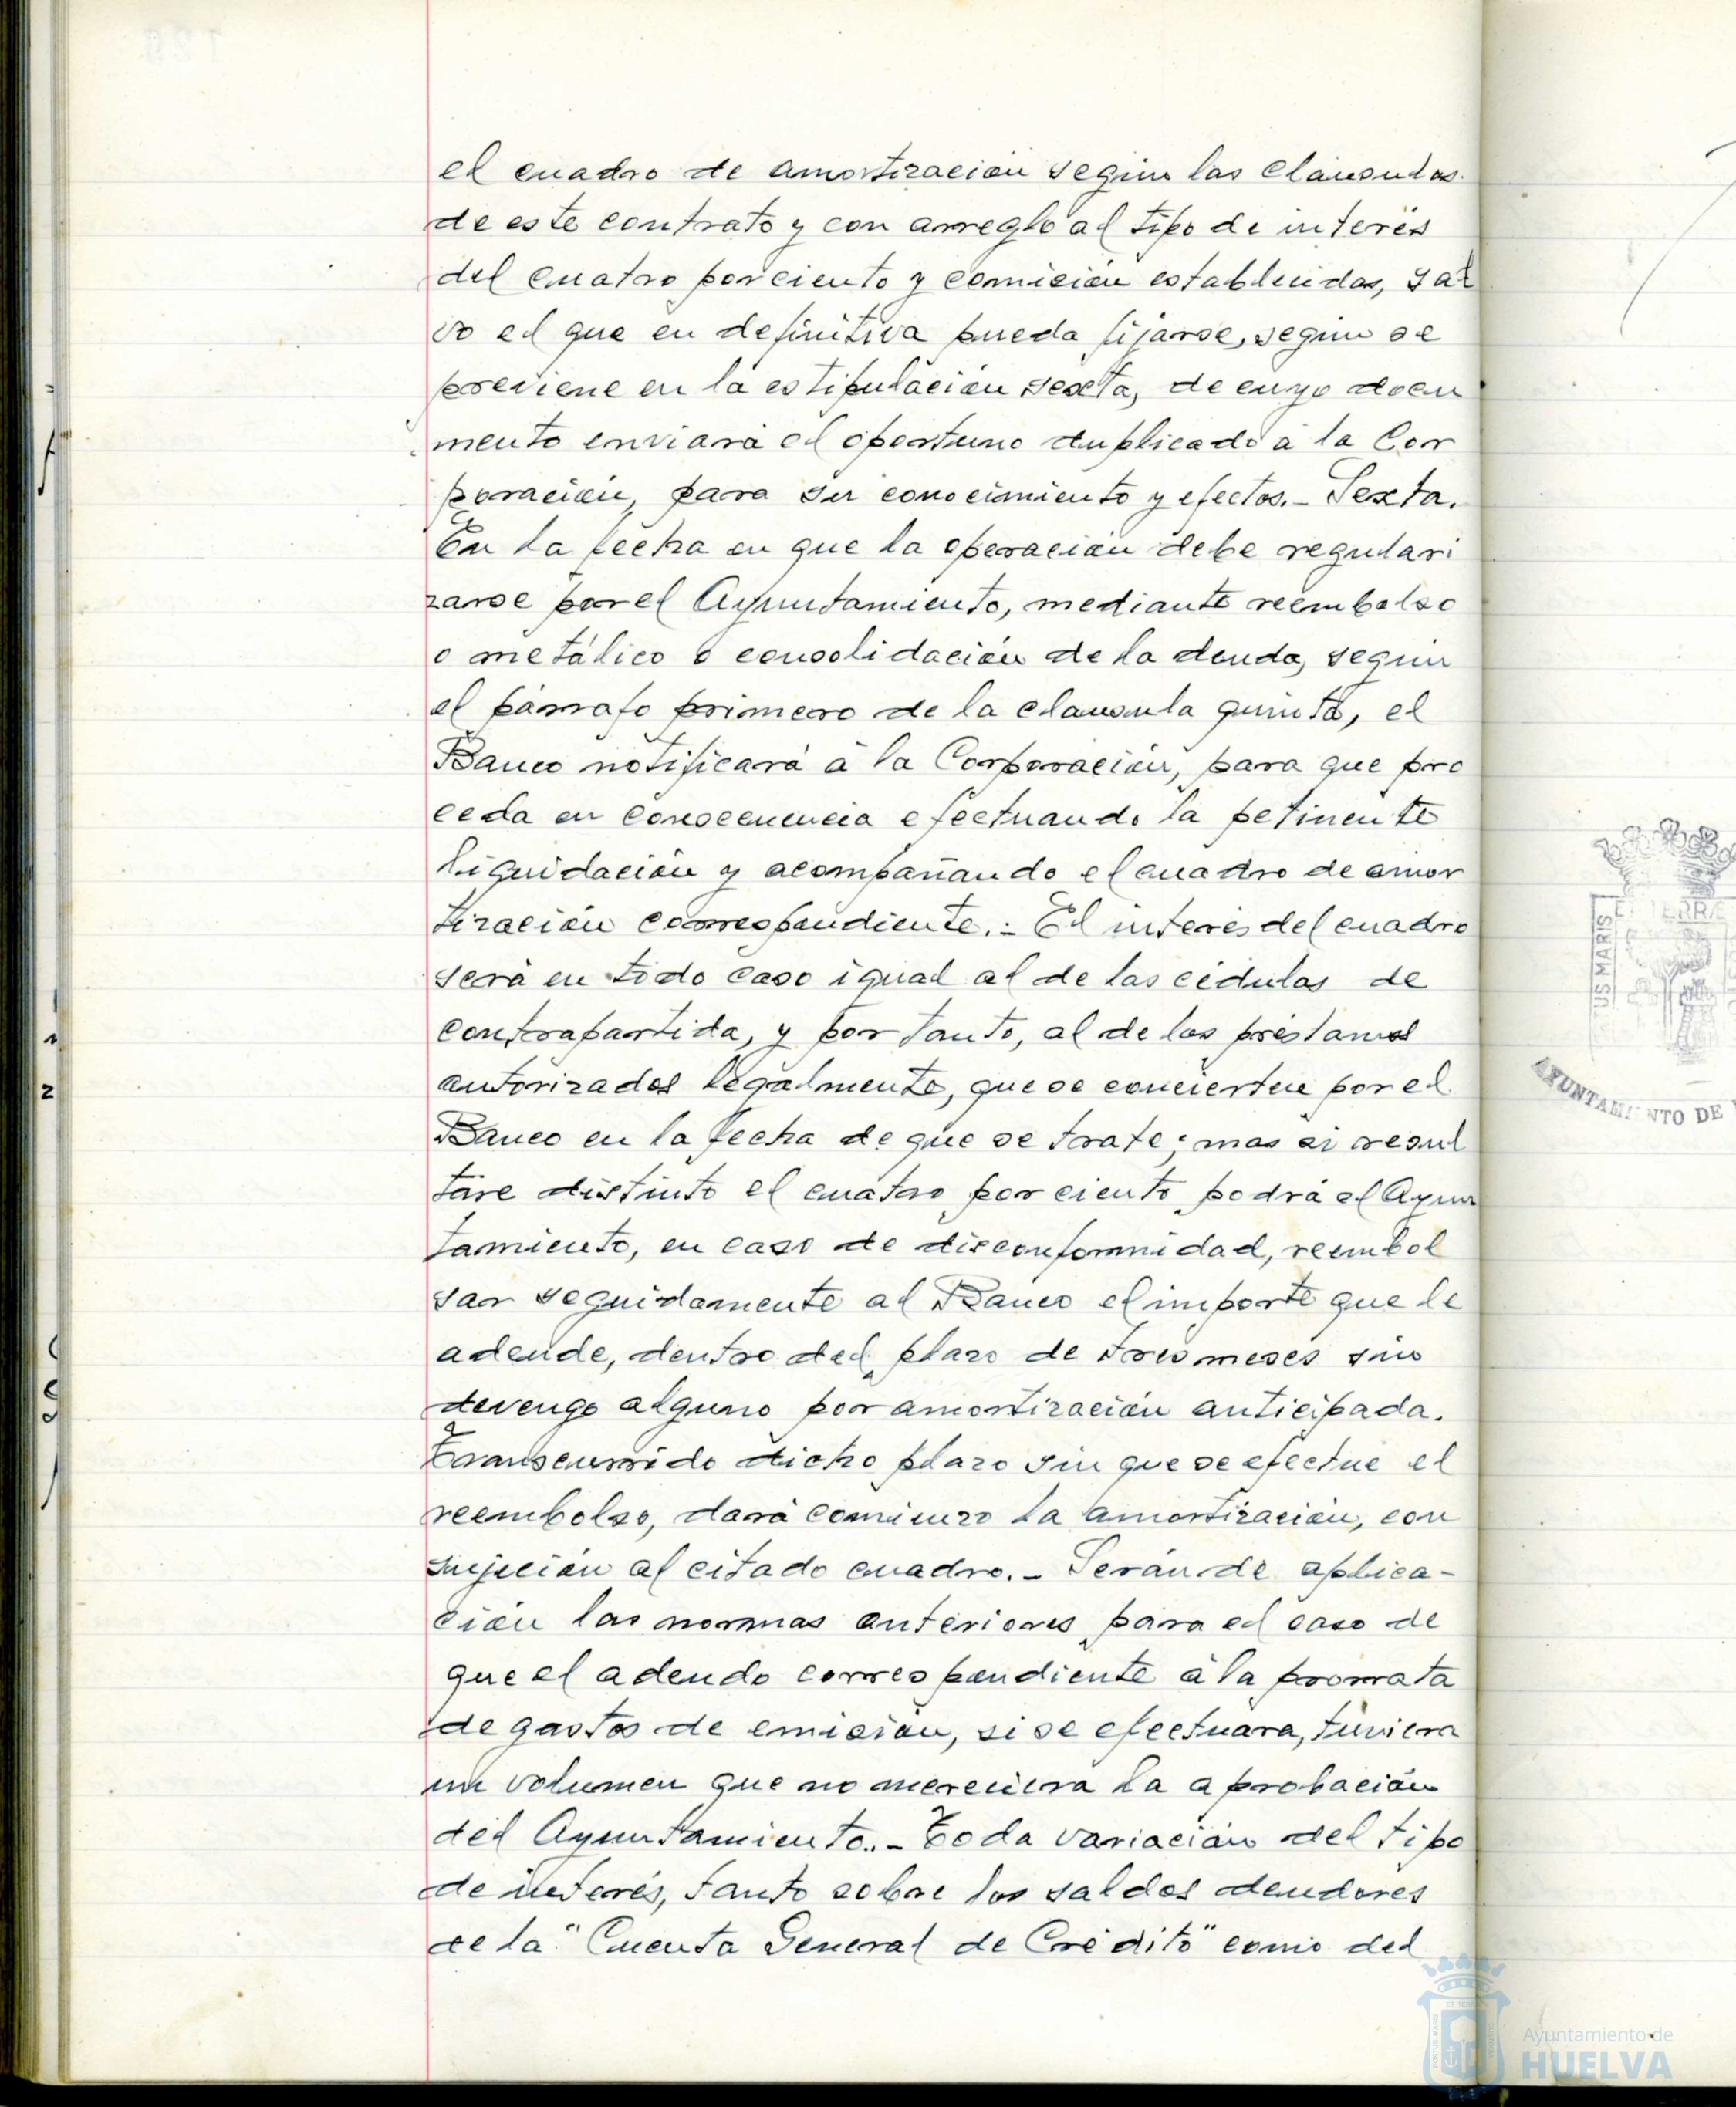 el cuadro de amortización según las cláusulas
de este contrato y con arreglo al tipo de interés
del cuatro por ciento y comisión establecidas, sal
vo el que en definitiva pueda fijarse, según se
previene en la estipulación sexta, de cuyo docu
mento enviará el oportuno duplicado á la Cor
poración, para su conocimiento y efectos.- Sexta.
En la fecha en que la operación debe regulari
zarse por el Ayuntamiento, mediante reembolso
o metálico ó consolidación de la deuda, según
el párrafo primero de la clausula quinta, el
Banco notificará á la Corporación, para que pro
ceda en consecuencia efectuando la petinente
liquidación y acompañando el cuadro de amor
tización correspondiente.- El interés del cuadro
será en todo caso igual al de las cédulas de
contrapartida, y por tanto, al de los préstamos
autorizados legalmente, que se concierten por el
Banco en la fecha de que se trate; mas si resul
tare distinto el cuatro por ciento podrá el Ayun
tamiento, en caso de disconformidad, reembol
sar seguidamente al Banco el importe que le
adeude, dentro del plazo de tres meses sin
devengo alguno por amortización anticipada.
Transcurrido dicho plazo sin que se efectue el
reembolso, dará comienzo la amortización, con
sujeción al citado cuadro.- Serán de aplica-
ción las normas anteriores para el caso de
que el adeudo correspondiente á la prorrata
de gastos de emisión, si se efectuara, tuviera
un volumen que no mereciera la aprobación
del Ayuntamiento..- Toda variación del tipo
de interés, tanto sobre los saldos deudores
de la "Cuenta General de Crédito" como del
US MARIS
AYUNTAMIENTO DE
Ayuntamiento de
HUELVA